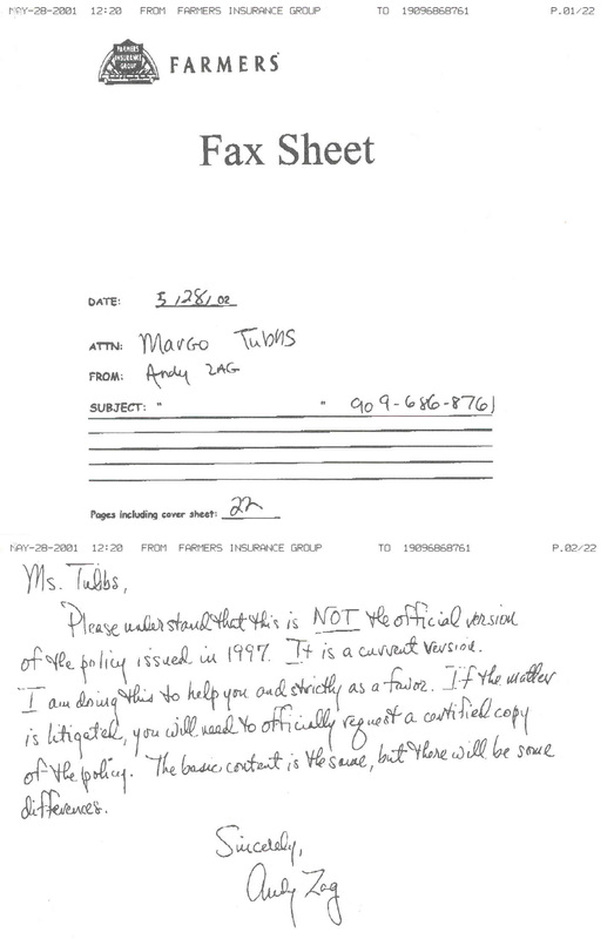 MAY-28-2001 12:20 FROM FARMERS INSURANCE GROUP TO 19096868761 P.01/22
FARMERS INSURANCE GROUP
FARMERS
Fax Sheet
DATE: 5/28/02
ATTN: Margo Tubbs
FROM: Andy ZAG
SUBJECT: " " 909-686-8761
Pages including cover sheet: 22
MAY-28-2001 12:20 FROM FARMERS INSURANCE GROUP TO 19096868761 P.02/22
Ms. Tubbs,
Please understand that this is NOT the official version
of the policy issued in 1997. It is a current version.
I am doing this to help you and strictly as a favor. If the matter
is litigated, you will need to officially request a certified copy
of the policy. The basic content is the same, but there will be some
differences.
Sincerely,
Andy Zag